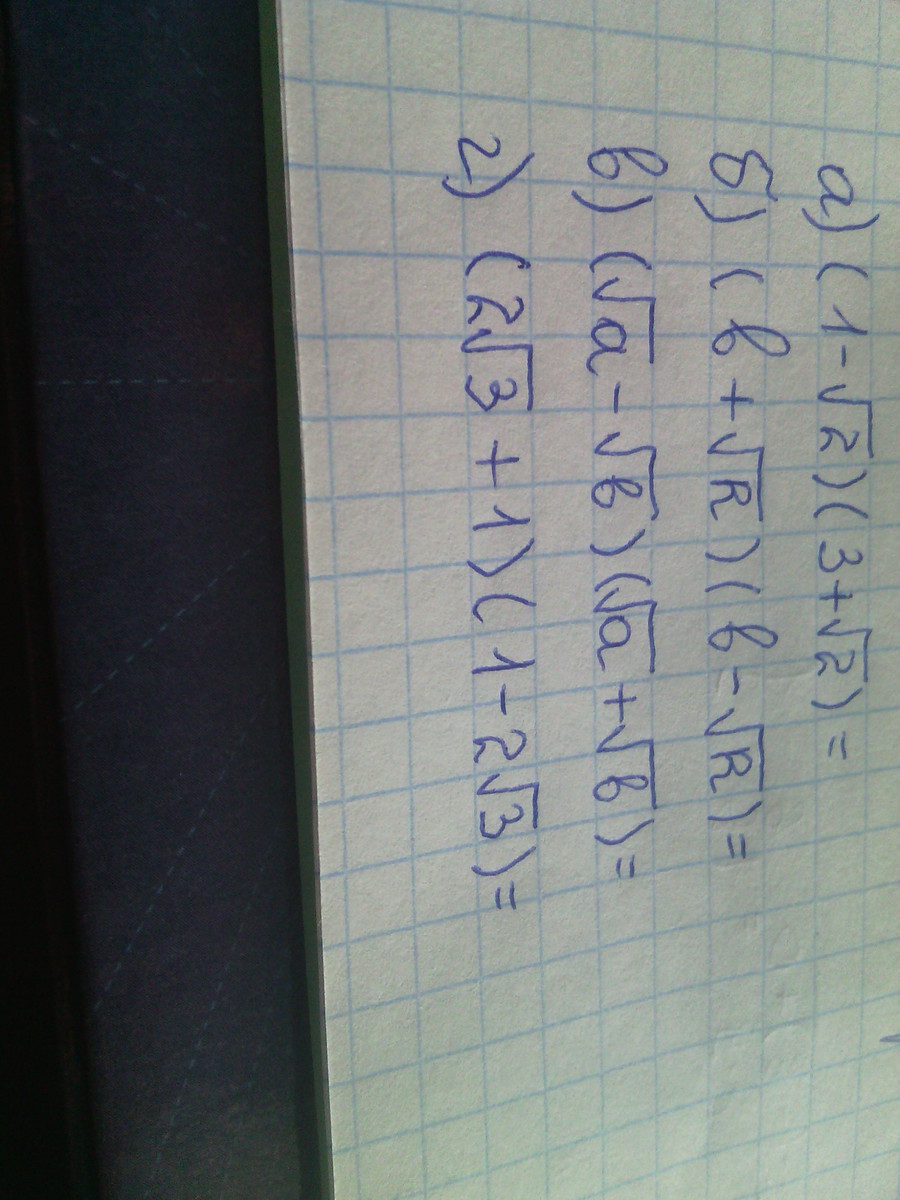 а) (1-√2)(3+√2)=
б) (в+√k)(в-√k)=
в) (√a-√в)(√a+√в)=
г) (2√3+1)(1-2√3)=